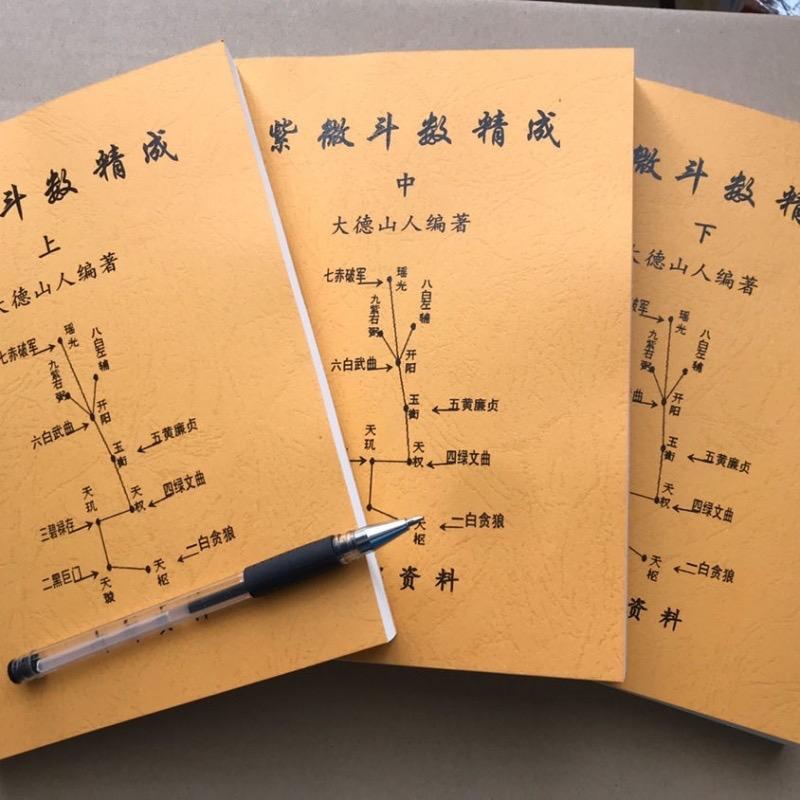 斗数精成
上
大德山人编著
七赤破军
瑶光
八白左辅
九紫右弼
开阳
六白武曲
玉衡
五黄廉贞
天玑
天权
四绿文曲
三碧禄存
二白贪狼
天枢
二黑巨门
天璇
资料
紫微斗数精成
中
大德山人编著
七赤破军
瑶光
八白左辅
九紫右弼
开阳
六白武曲
玉衡
五黄廉贞
天玑
天权
四绿文曲
天枢
二白贪狼
资料
微斗数精
下
大德山人编著
瑶光
八白左辅
九紫右弼
开阳
曲
玉衡
五黄廉贞
天权
四绿文曲
天枢
二白贪狼
资料